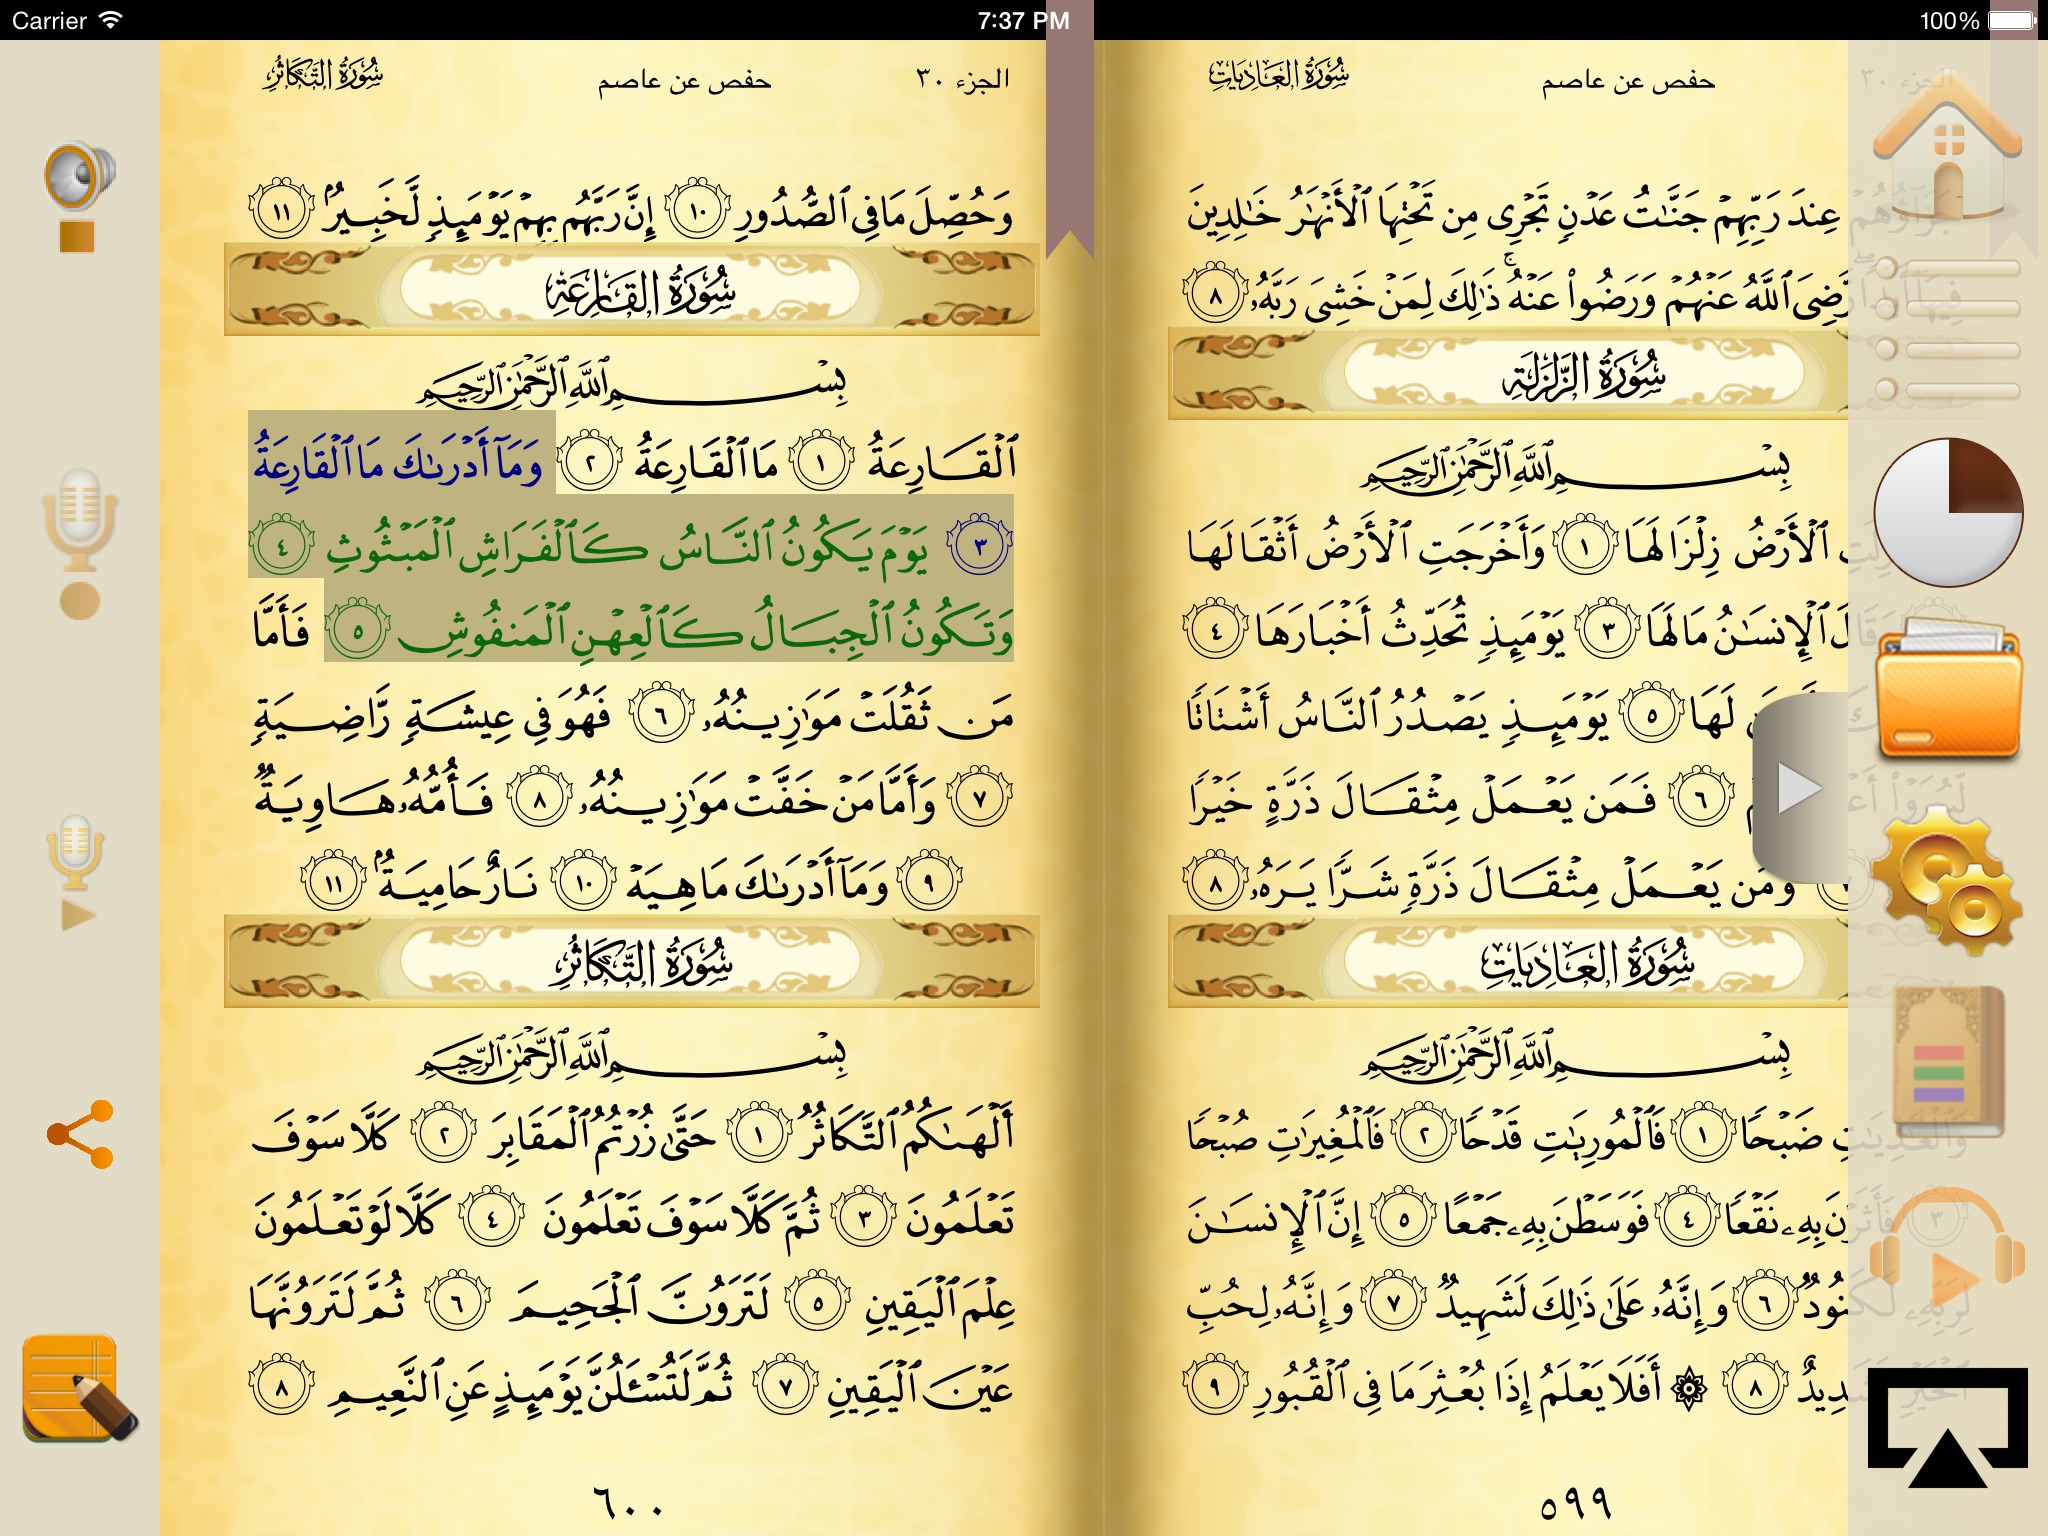 Carrier 7:37 PM 100%
الجزء ٣٠ حفص عن عاصم سُورَةُ العَادِيَات
جَزَآؤُهُمْ عِندَ رَبِّهِمْ جَنَّٰتُ عَدْنٍ تَجْرِى مِن تَحْتِهَا ٱلْأَنْهَٰرُ خَٰلِدِينَ
فِيهَآ أَبَدًا رَّضِىَ ٱللَّهُ عَنْهُمْ وَرَضُوا۟ عَنْهُ ۚ ذَٰلِكَ لِمَنْ خَشِىَ رَبَّهُۥ ٨
سُورَةُ الزَّلْزَلَةِ
بِسْمِ ٱللَّهِ ٱلرَّحْمَٰنِ ٱلرَّحِيمِ
ٱلْأَرْضُ زِلْزَالَهَا ١ وَأَخْرَجَتِ ٱلْأَرْضُ أَثْقَالَهَا
وَقَالَ ٱلْإِنسَٰنُ مَا لَهَا ٣ يَوْمَئِذٍ تُحَدِّثُ أَخْبَارَهَا ٤
لَهَا ٥ يَوْمَئِذٍ يَصْدُرُ ٱلنَّاسُ أَشْتَاتًا
لِّيُرَوْا۟ ٦ فَمَن يَعْمَلْ مِثْقَالَ ذَرَّةٍ خَيْرًا
وَمَن يَعْمَلْ مِثْقَالَ ذَرَّةٍ شَرًّا يَرَهُۥ ٨
سُورَةُ العَادِيَات
بِسْمِ ٱللَّهِ ٱلرَّحْمَٰنِ ٱلرَّحِيمِ
وَٱلْعَٰدِيَٰتِ ضَبْحًا ١ فَٱلْمُورِيَٰتِ قَدْحًا ٢ فَٱلْمُغِيرَٰتِ صُبْحًا
٣ فَأَثَرْنَ بِهِۦ نَقْعًا ٤ فَوَسَطْنَ بِهِۦ جَمْعًا ٥ إِنَّ ٱلْإِنسَٰنَ
لِرَبِّهِۦ لَكَنُودٌ ٦ وَإِنَّهُۥ عَلَىٰ ذَٰلِكَ لَشَهِيدٌ ٧ وَإِنَّهُۥ لِحُبِّ
ٱلْخَيْرِ لَشَدِيدٌ ٨ ۞ أَفَلَا يَعْلَمُ إِذَا بُعْثِرَ مَا فِى ٱلْقُبُورِ ٩
٥٩٩
الجزء ٣٠ حفص عن عاصم سُورَةُ التَّكَاثُر
وَحُصِّلَ مَا فِى ٱلصُّدُورِ ١٠ إِنَّ رَبَّهُم بِهِمْ يَوْمَئِذٍ لَّخَبِيرٌۢ ١١
سُورَةُ القَارِعَةِ
بِسْمِ ٱللَّهِ ٱلرَّحْمَٰنِ ٱلرَّحِيمِ
ٱلْقَارِعَةُ ١ مَا ٱلْقَارِعَةُ ٢ وَمَآ أَدْرَىٰكَ مَا ٱلْقَارِعَةُ
٣ يَوْمَ يَكُونُ ٱلنَّاسُ كَٱلْفَرَاشِ ٱلْمَبْثُوثِ ٤
وَتَكُونُ ٱلْجِبَالُ كَٱلْعِهْنِ ٱلْمَنفُوشِ ٥ فَأَمَّا
مَن ثَقُلَتْ مَوَٰزِينُهُۥ ٦ فَهُوَ فِى عِيشَةٍ رَّاضِيَةٍ
٧ وَأَمَّا مَنْ خَفَّتْ مَوَٰزِينُهُۥ ٨ فَأُمُّهُۥ هَاوِيَةٌ
٩ وَمَآ أَدْرَىٰكَ مَا هِيَهْ ١٠ نَارٌ حَامِيَةٌۢ ١١
سُورَةُ التَّكَاثُر
بِسْمِ ٱللَّهِ ٱلرَّحْمَٰنِ ٱلرَّحِيمِ
أَلْهَىٰكُمُ ٱلتَّكَاثُرُ ١ حَتَّىٰ زُرْتُمُ ٱلْمَقَابِرَ ٢ كَلَّا سَوْفَ
تَعْلَمُونَ ٣ ثُمَّ كَلَّا سَوْفَ تَعْلَمُونَ ٤ كَلَّا لَوْ تَعْلَمُونَ
عِلْمَ ٱلْيَقِينِ ٥ لَتَرَوُنَّ ٱلْجَحِيمَ ٦ ثُمَّ لَتَرَوُنَّهَا
عَيْنَ ٱلْيَقِينِ ٧ ثُمَّ لَتُسْـَٔلُنَّ يَوْمَئِذٍ عَنِ ٱلنَّعِيمِ ٨
٦٠٠